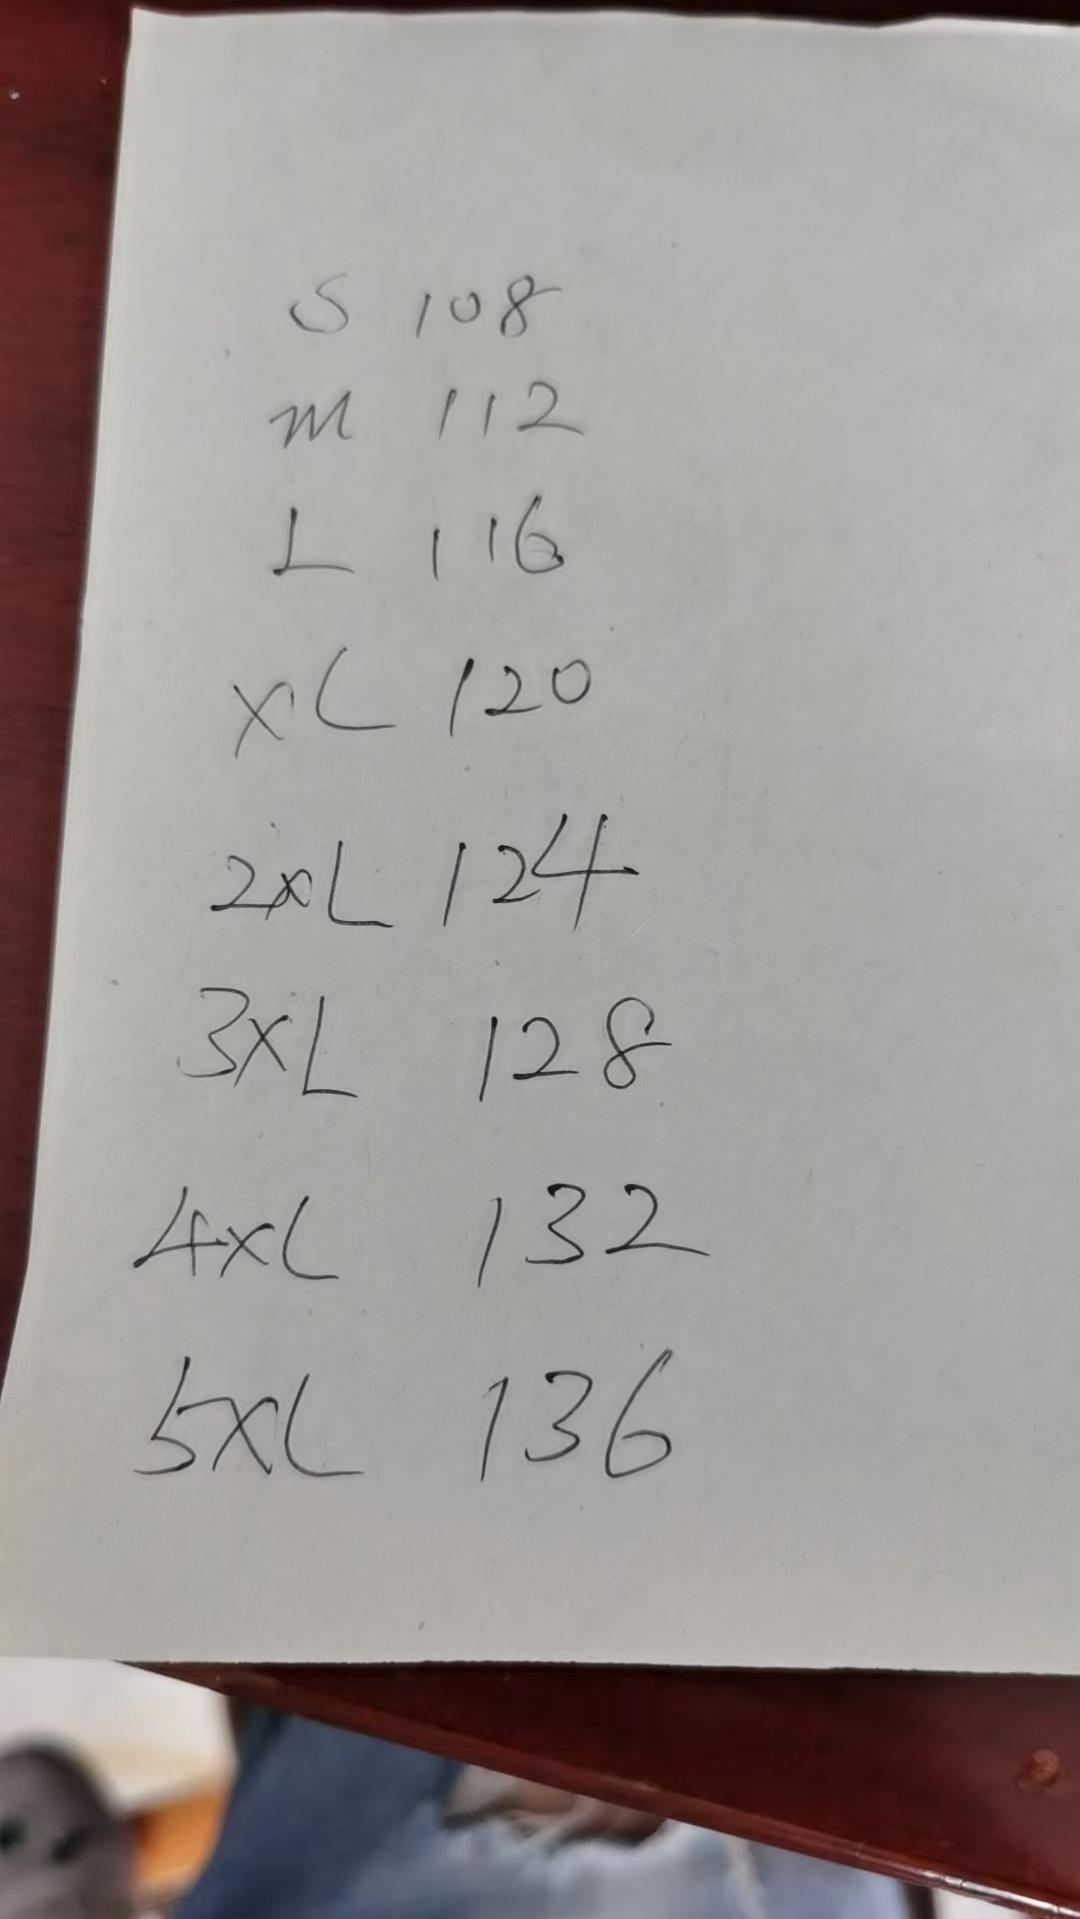 S 108
M 112
L 116
XL 120
2XL 124
3XL 128
4XL 132
5XL 136